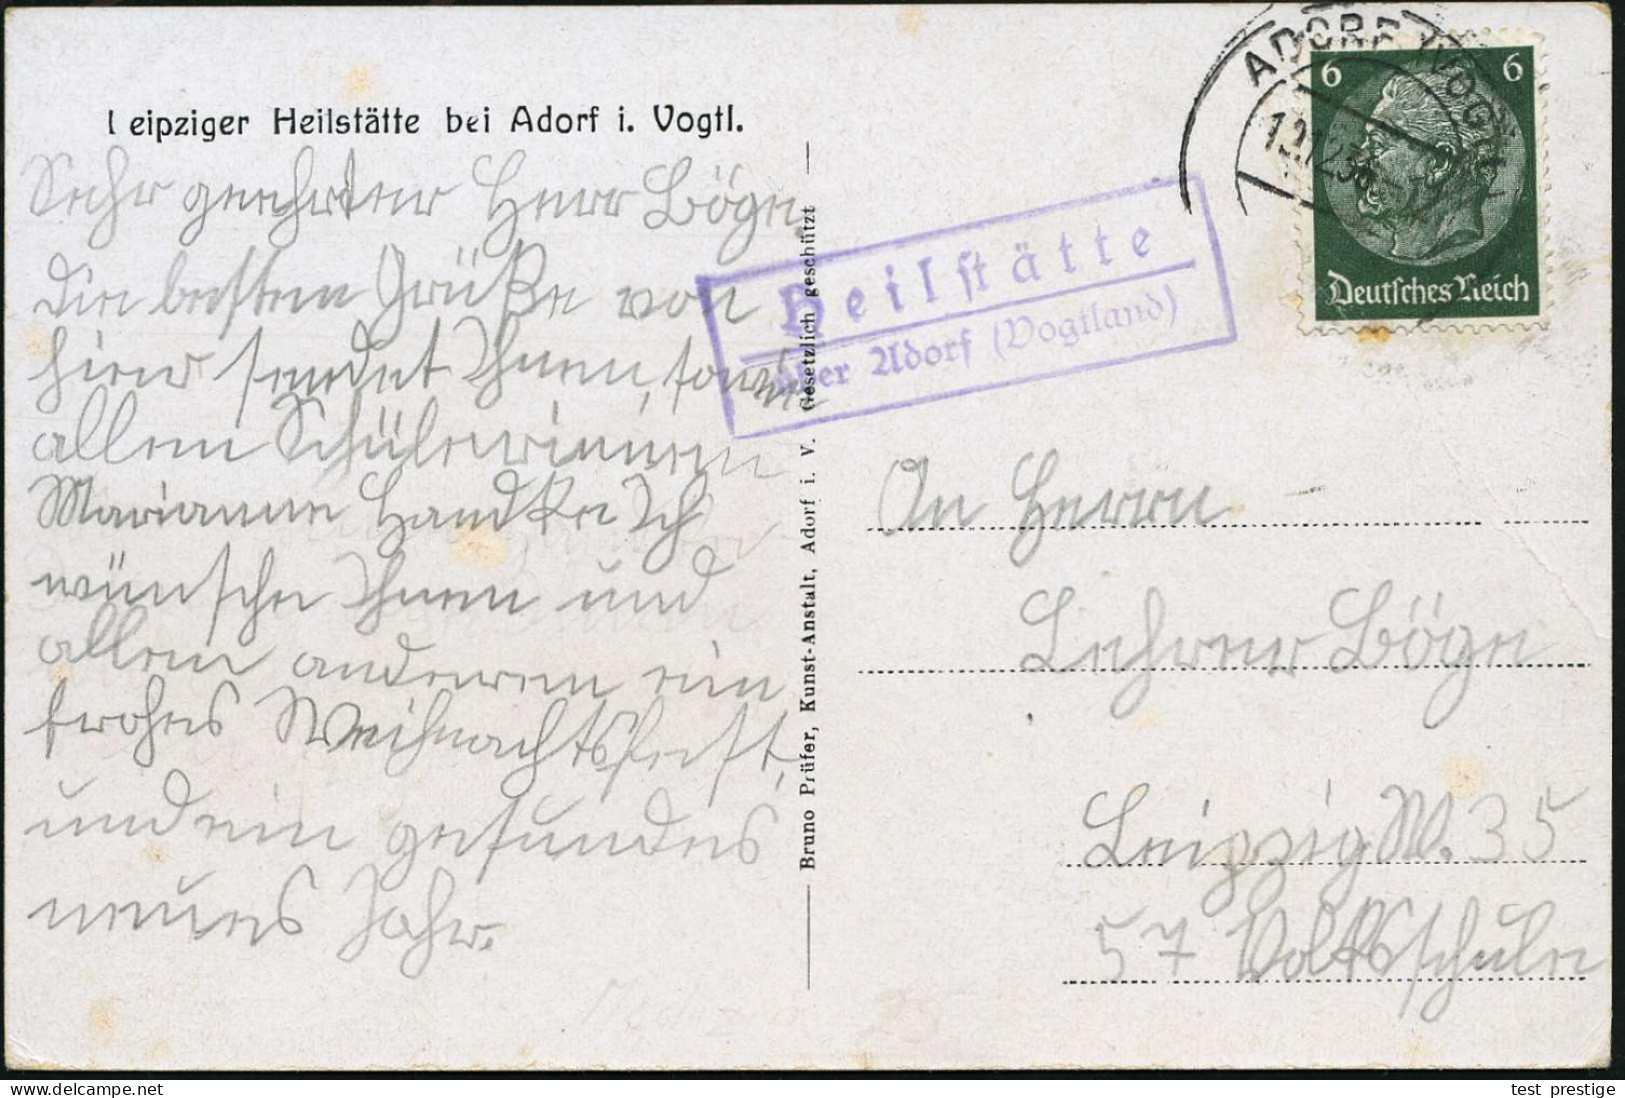 Leipziger Heilstätte bei Adorf i. Vogtl.
Sehr geehrter Herr Böge.
Die besten Grüße von
hier sendet Ihnen, sowie
allen Schülerinnen
Marianne Handke Ich
wünsche Ihnen und
allen anderen ein
frohes Weihnachtsfest,
und ein gesundes
neues Jahr.
Bruno Prüfer, Kunst-Anstalt, Adorf i. V. Gesetzlich geschützt
Heilstätte
über Adorf (Vogtland)
ADORF (VOGTL)
6 6
Deutsches Reich
An Herrn
Lehrer Böge
Leipzig W. 35
57 Volksschule
test prestige